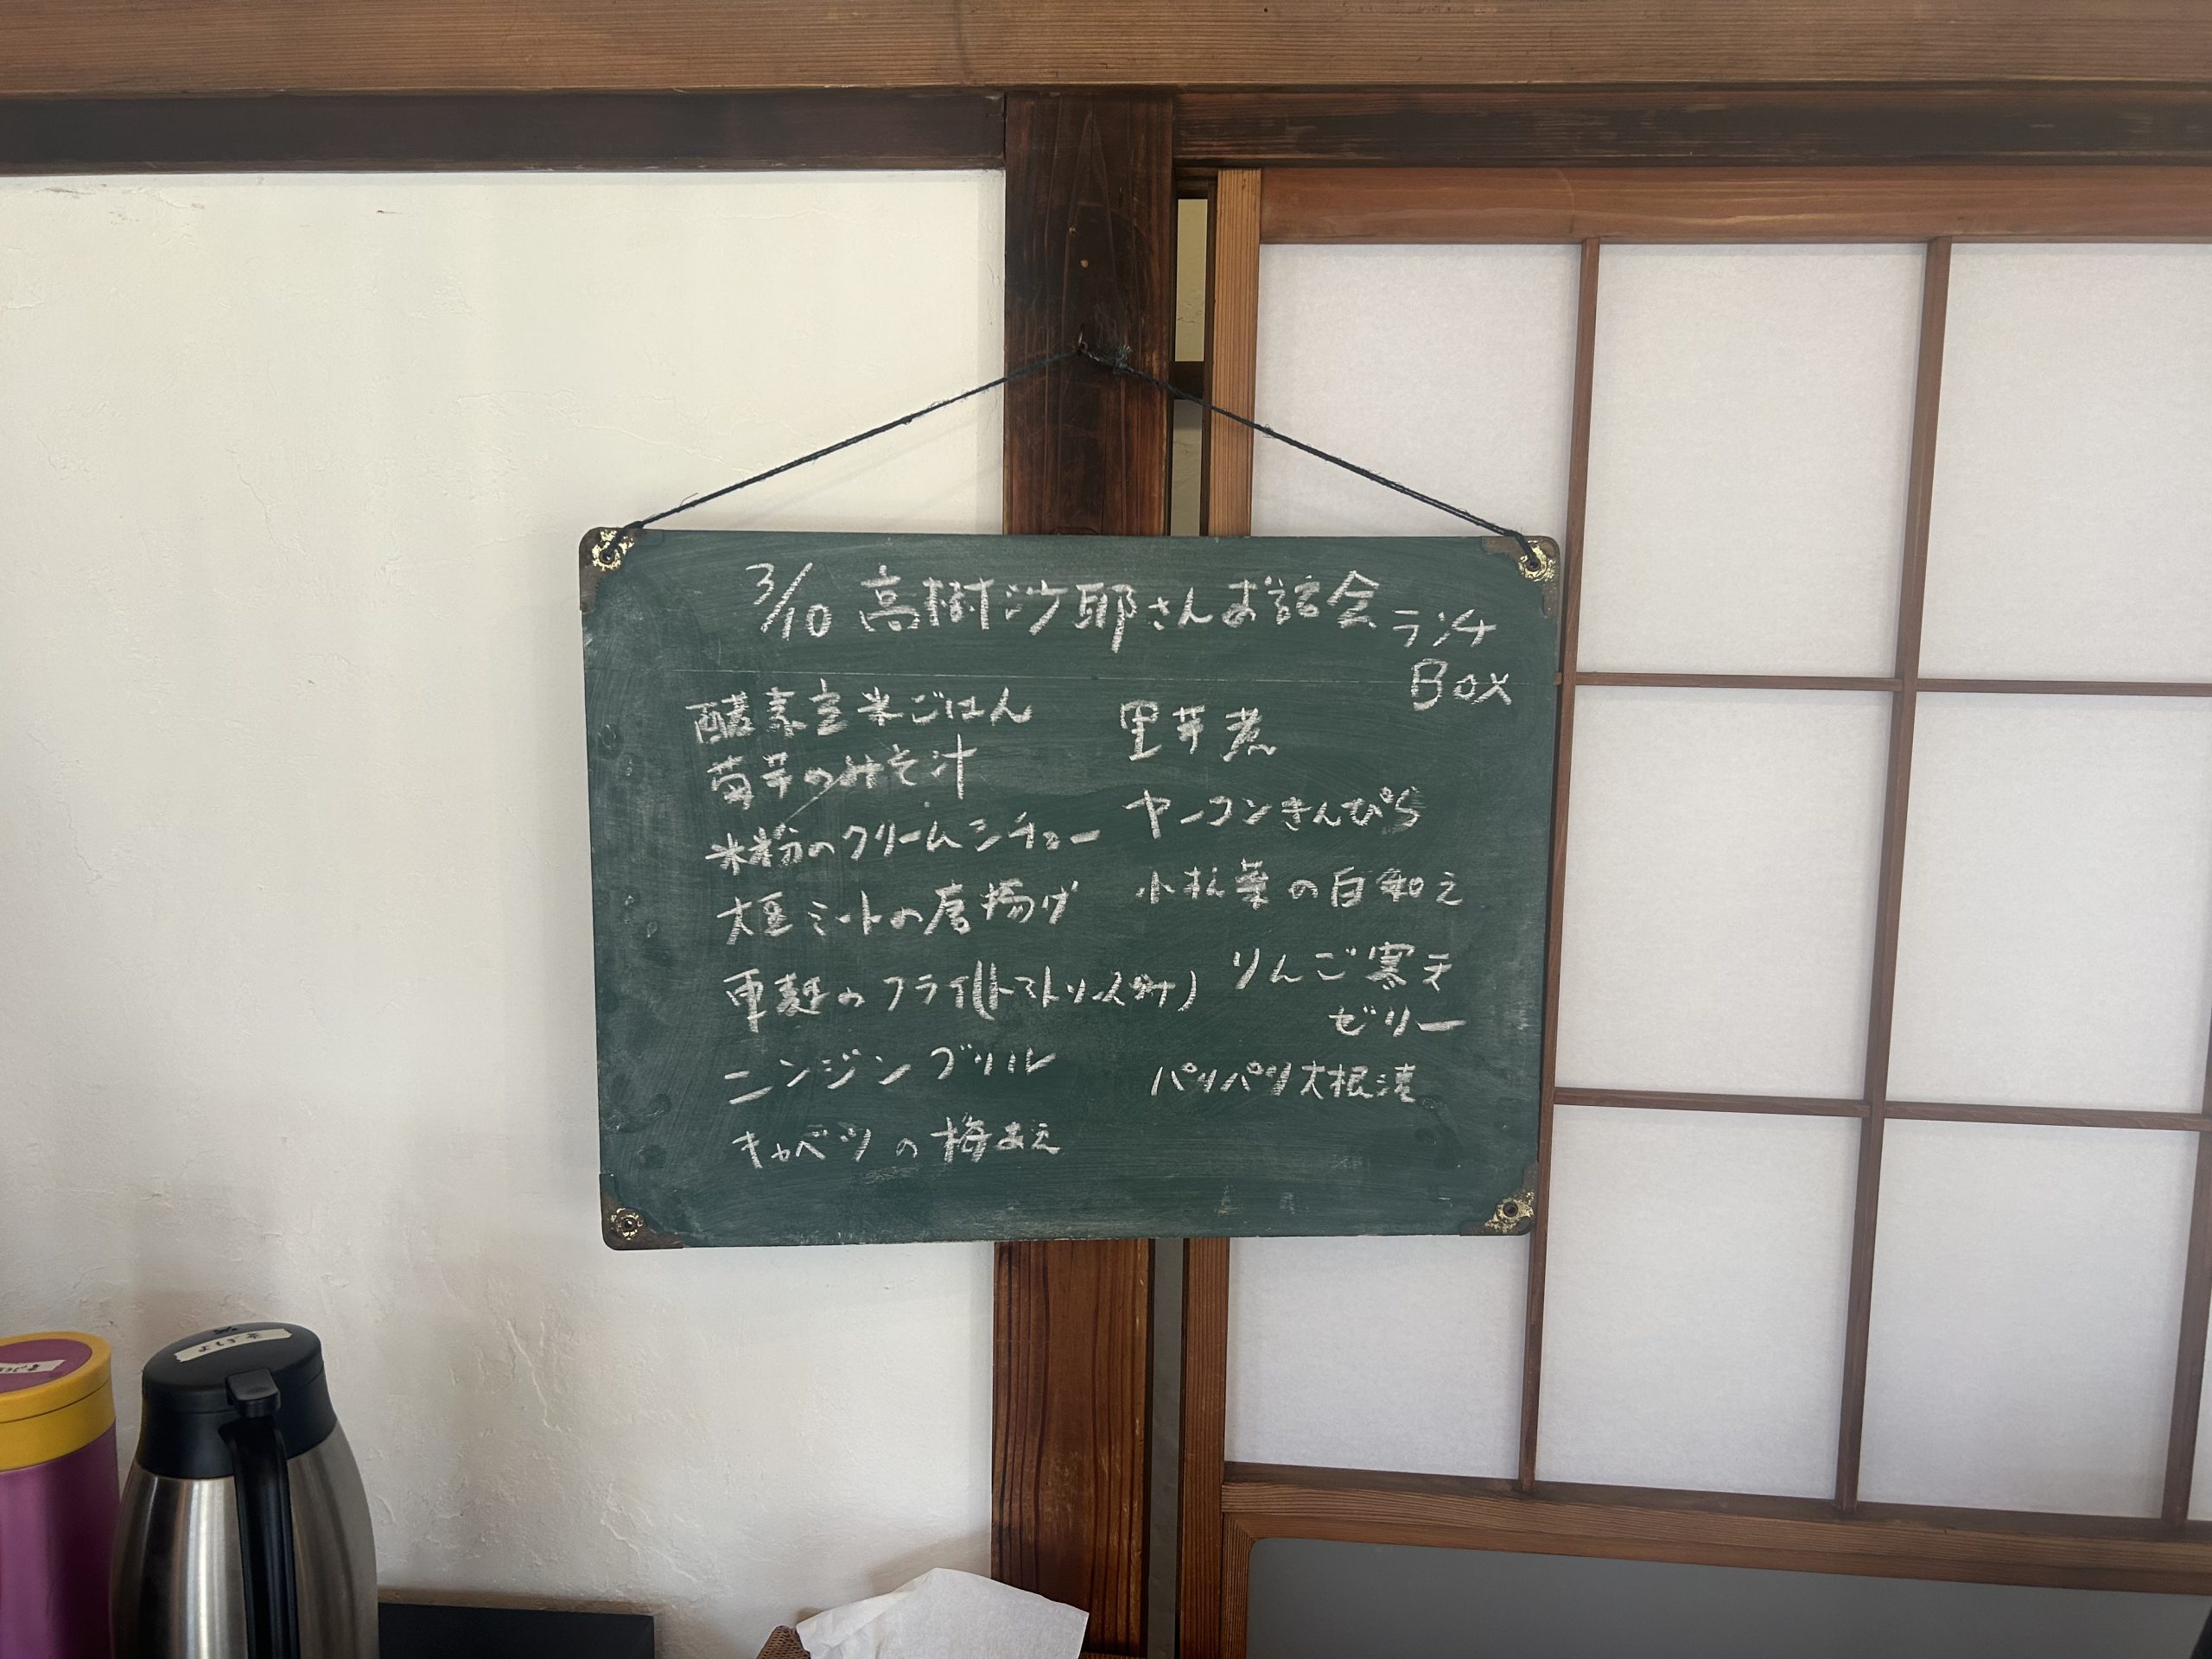 3/10 高樹沙耶さんお話会 ランチ
Box
酵素玄米ごはん
菊芋のみそ汁
米粉のクリームシチュー
大豆ミートの唐揚げ
車麩のフライ(トマトソースがけ)
ニンジングリル
キャベツの梅あえ
里芋煮
ヤーコンきんぴら
小松菜の白和え
りんご寒天
ゼリー
パリパリ大根漬